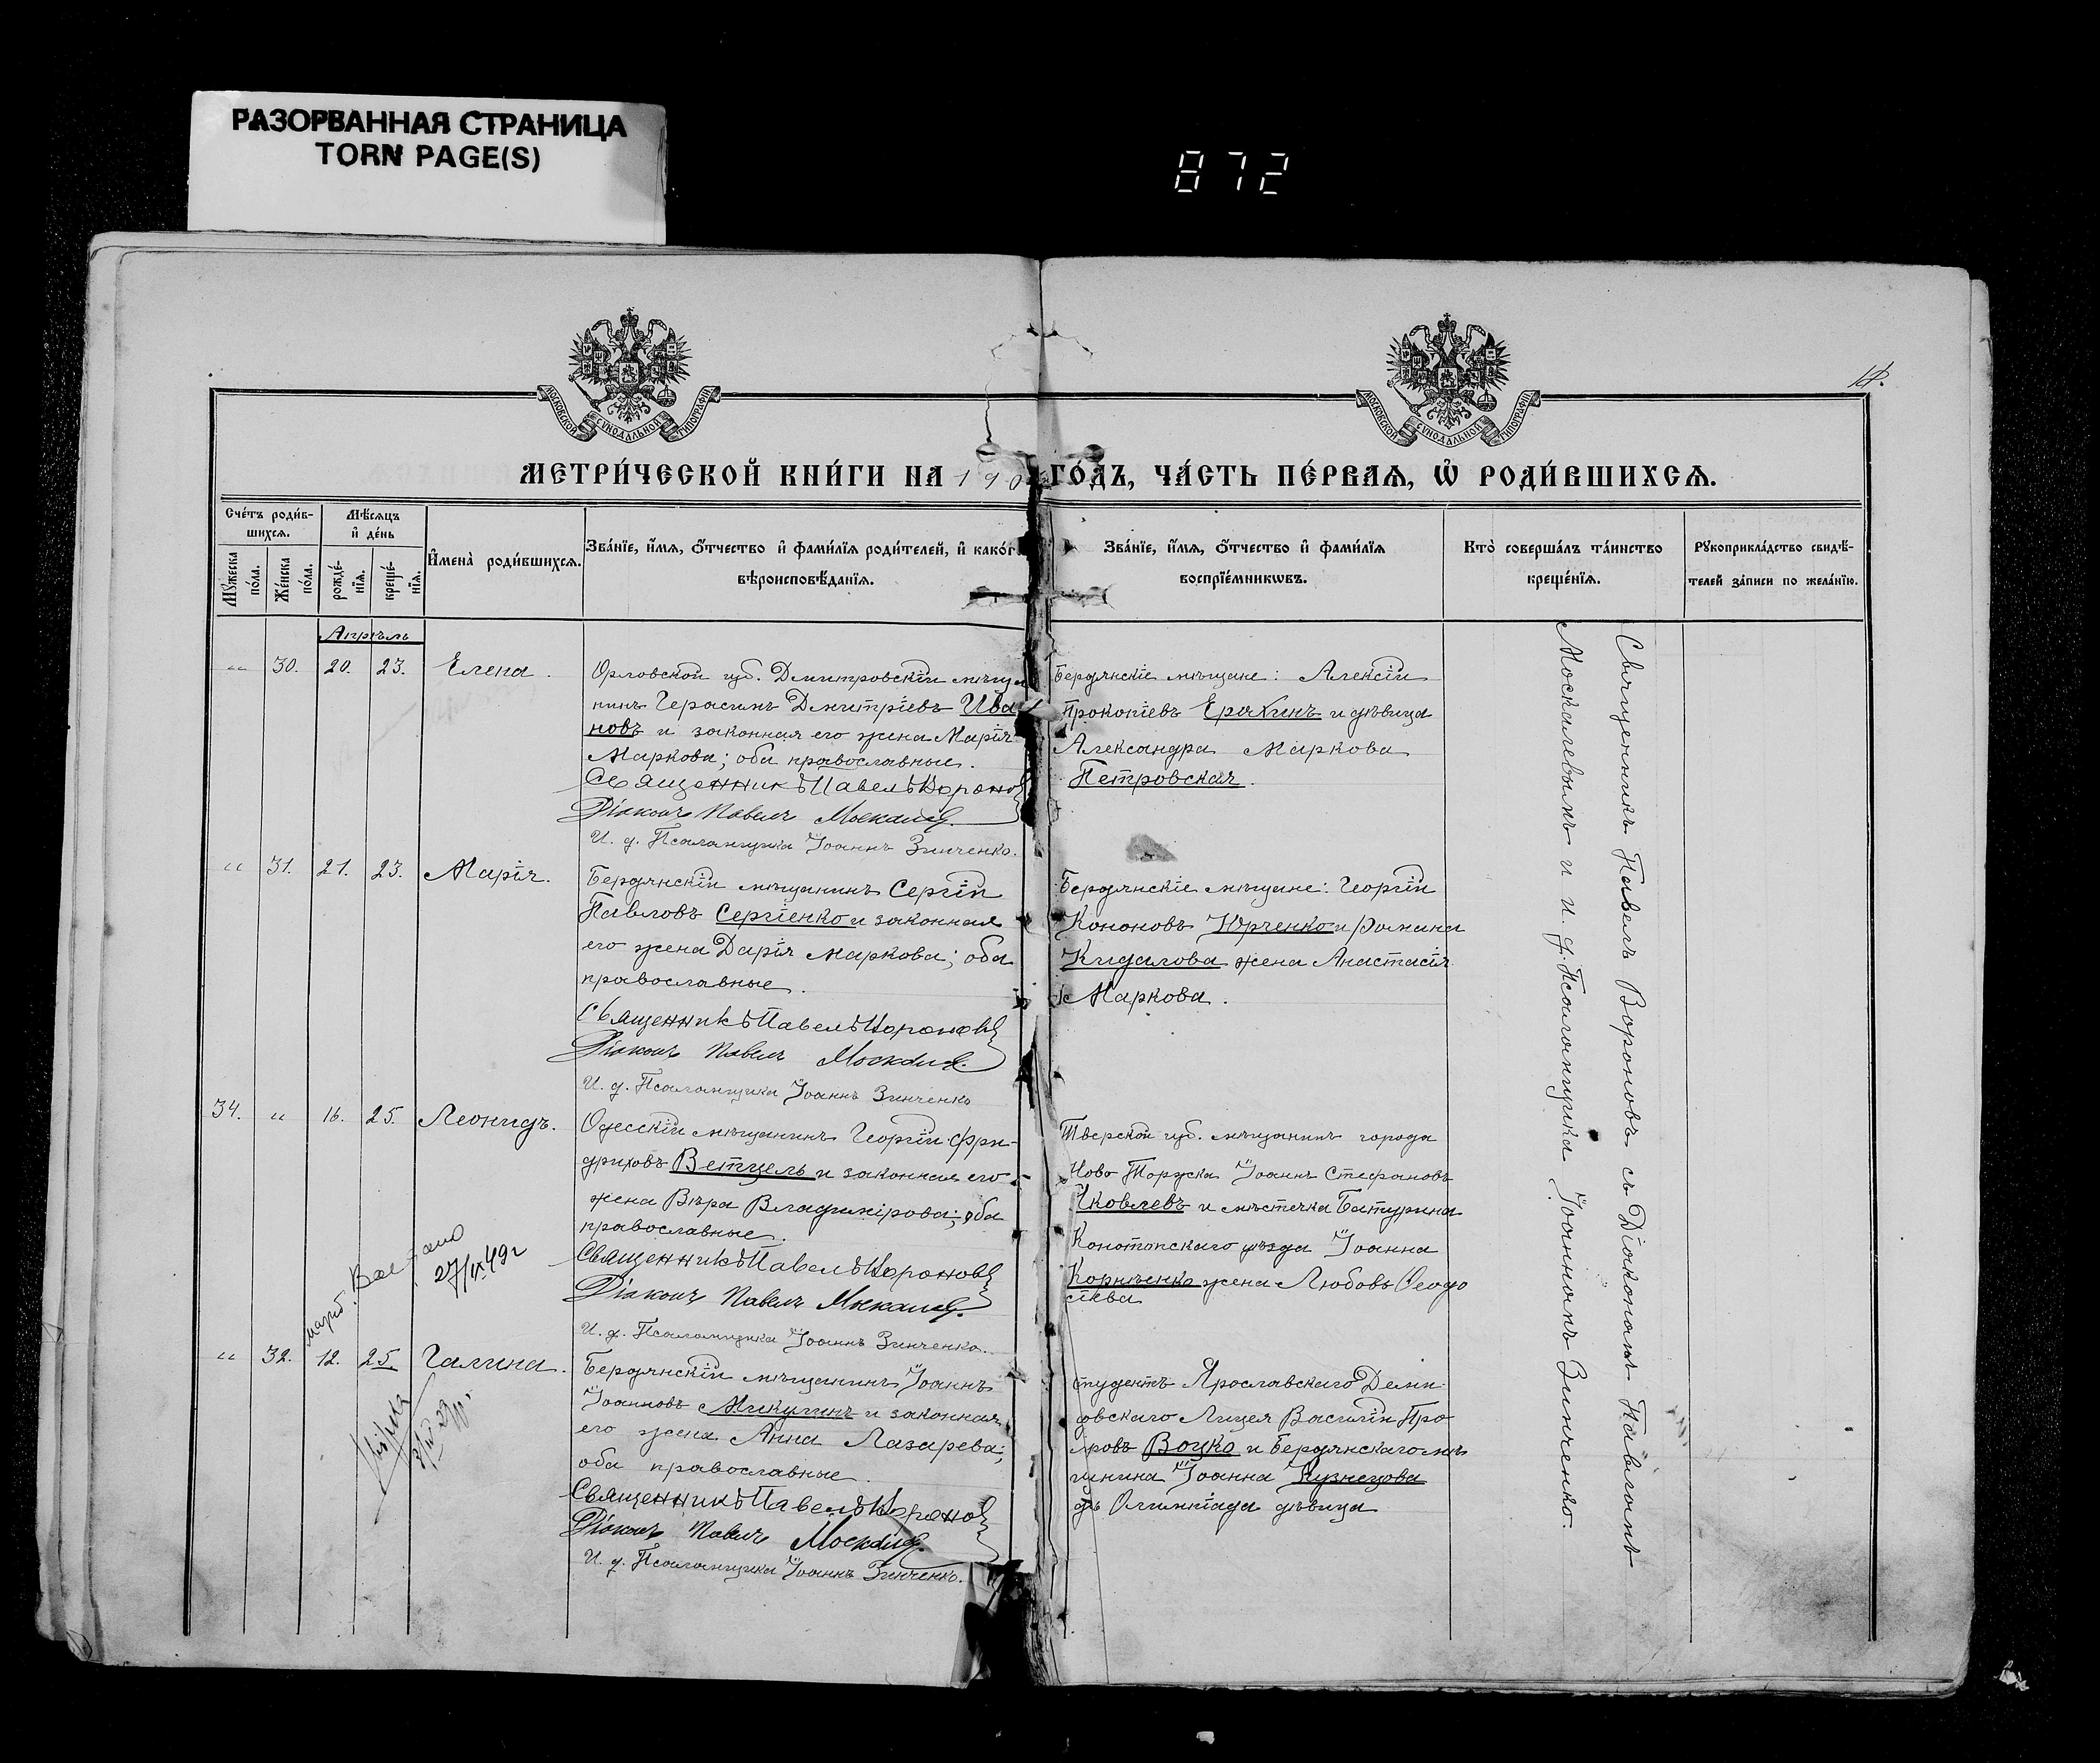 РАЗОРВАННАЯ СТРАНИЦА
TORN PAGE(S)
872
МОСКОВСКОЙ СѴНОДАЛЬНОЙ ТИПОГРАФІИ
МОСКОВСКОЙ СѴНОДАЛЬНОЙ ТИПОГРАФІИ
МЕТРИ́ЧЕСКОЙ КНИ́ГИ НА 190 ГО́ДЪ, ЧА́СТЬ ПЕ́РВАѦ, Ѡ҆ РОДИ́ВШИХСѦ.
Сче́тъ роди́в-
шихсѧ.
Мꙋ́жеска по́ла.
Же́нска по́ла.
Мѣ́сѧцъ
и҆ де́нь
рожде́-
нїѧ.
креще́-
нїѧ.
И҆мена̀ роди́вшихсѧ.
Зва́нїе, и҆́мѧ, ѻ҆́тчество и҆ фами́лїѧ роди́телей, и҆ како́г
вѣроисповѣ́данїѧ.
Зва́нїе, и҆́мѧ, ѻ҆́тчество и҆ фами́лїѧ
воспрїе́мникѡвъ.
Кто̀ соверша́лъ та́инство
креще́нїѧ.
Рꙋкоприкла́дство свидѣ́-
телей за́писи по жела́нїю.
Апрѣль
" 30. 20. 23. Елена.
Орловской губ. Дмитровскій мѣща
нинъ Герасимъ Дмитріевъ Ива
новъ и законная его жена Марія
Маркова; оба православные.
Священникъ Павелъ Вороно
Діаконъ Павелъ Москалев.
И. д. Псаломщика Іоаннъ Зинченко.
Бердянскіе мѣщане: Алексій
Прокопіевъ Ерохинъ и дѣвица
Александра Маркова
Петровская.
" 31. 21. 23. Марія.
Бердянскій мѣщанинъ Сергій
Павловъ Сергіенко и законная
его жена Дарія Маркова; оба
православные.
Священникъ Павелъ Вороновъ
Діаконъ Павелъ Москалев.
И. д. Псаломщика Іоаннъ Зинченко
Бердянскіе мѣщане: Георгій
Кононовъ Юрченко и Романа
Кидалова жена Анастасія
Маркова.
34. " 16. 25. Леонидъ.
Одесскій мѣщанинъ Георгій Фри-
дриховъ Ветцель и законная его
жена Вѣра Владимірова; оба
православные.
Священникъ Павелъ Вороновъ
Діаконъ Павелъ Москалев.
И. д. Псаломщика Іоаннъ Зинченко.
Тверской губ. мѣщанинъ города
Ново Торжска Іоаннъ Стефановъ
Яковлевъ и мѣстечка Батурина
Конотопскаго уѣзда Іоанна
Корніенко жена Любовь Ѳеодо
сіева
27/IX 49г
мартъ.
" 32. 12. 25. Галина.
Бердянскій мѣщанинъ Іоаннъ
Іоанновъ Микулинъ и законная
его жена Анна Лазарева;
оба православные.
Священникъ Павелъ Вороно
Діаконъ Павелъ Москалев.
И. д. Псаломщика Іоаннъ Зинченко.
студентъ Ярославскаго Деми
довскаго Лицея Василій Про
ровъ Воцко и Бердянскаго мѣ
щанина Іоанна Кузнецова
дь Олимпіада дѣвица
Священникъ Павелъ Вороновъ съ Діакономъ Павломъ
Москалевымъ и и. д. Псаломщика Іоанномъ Зинченко.